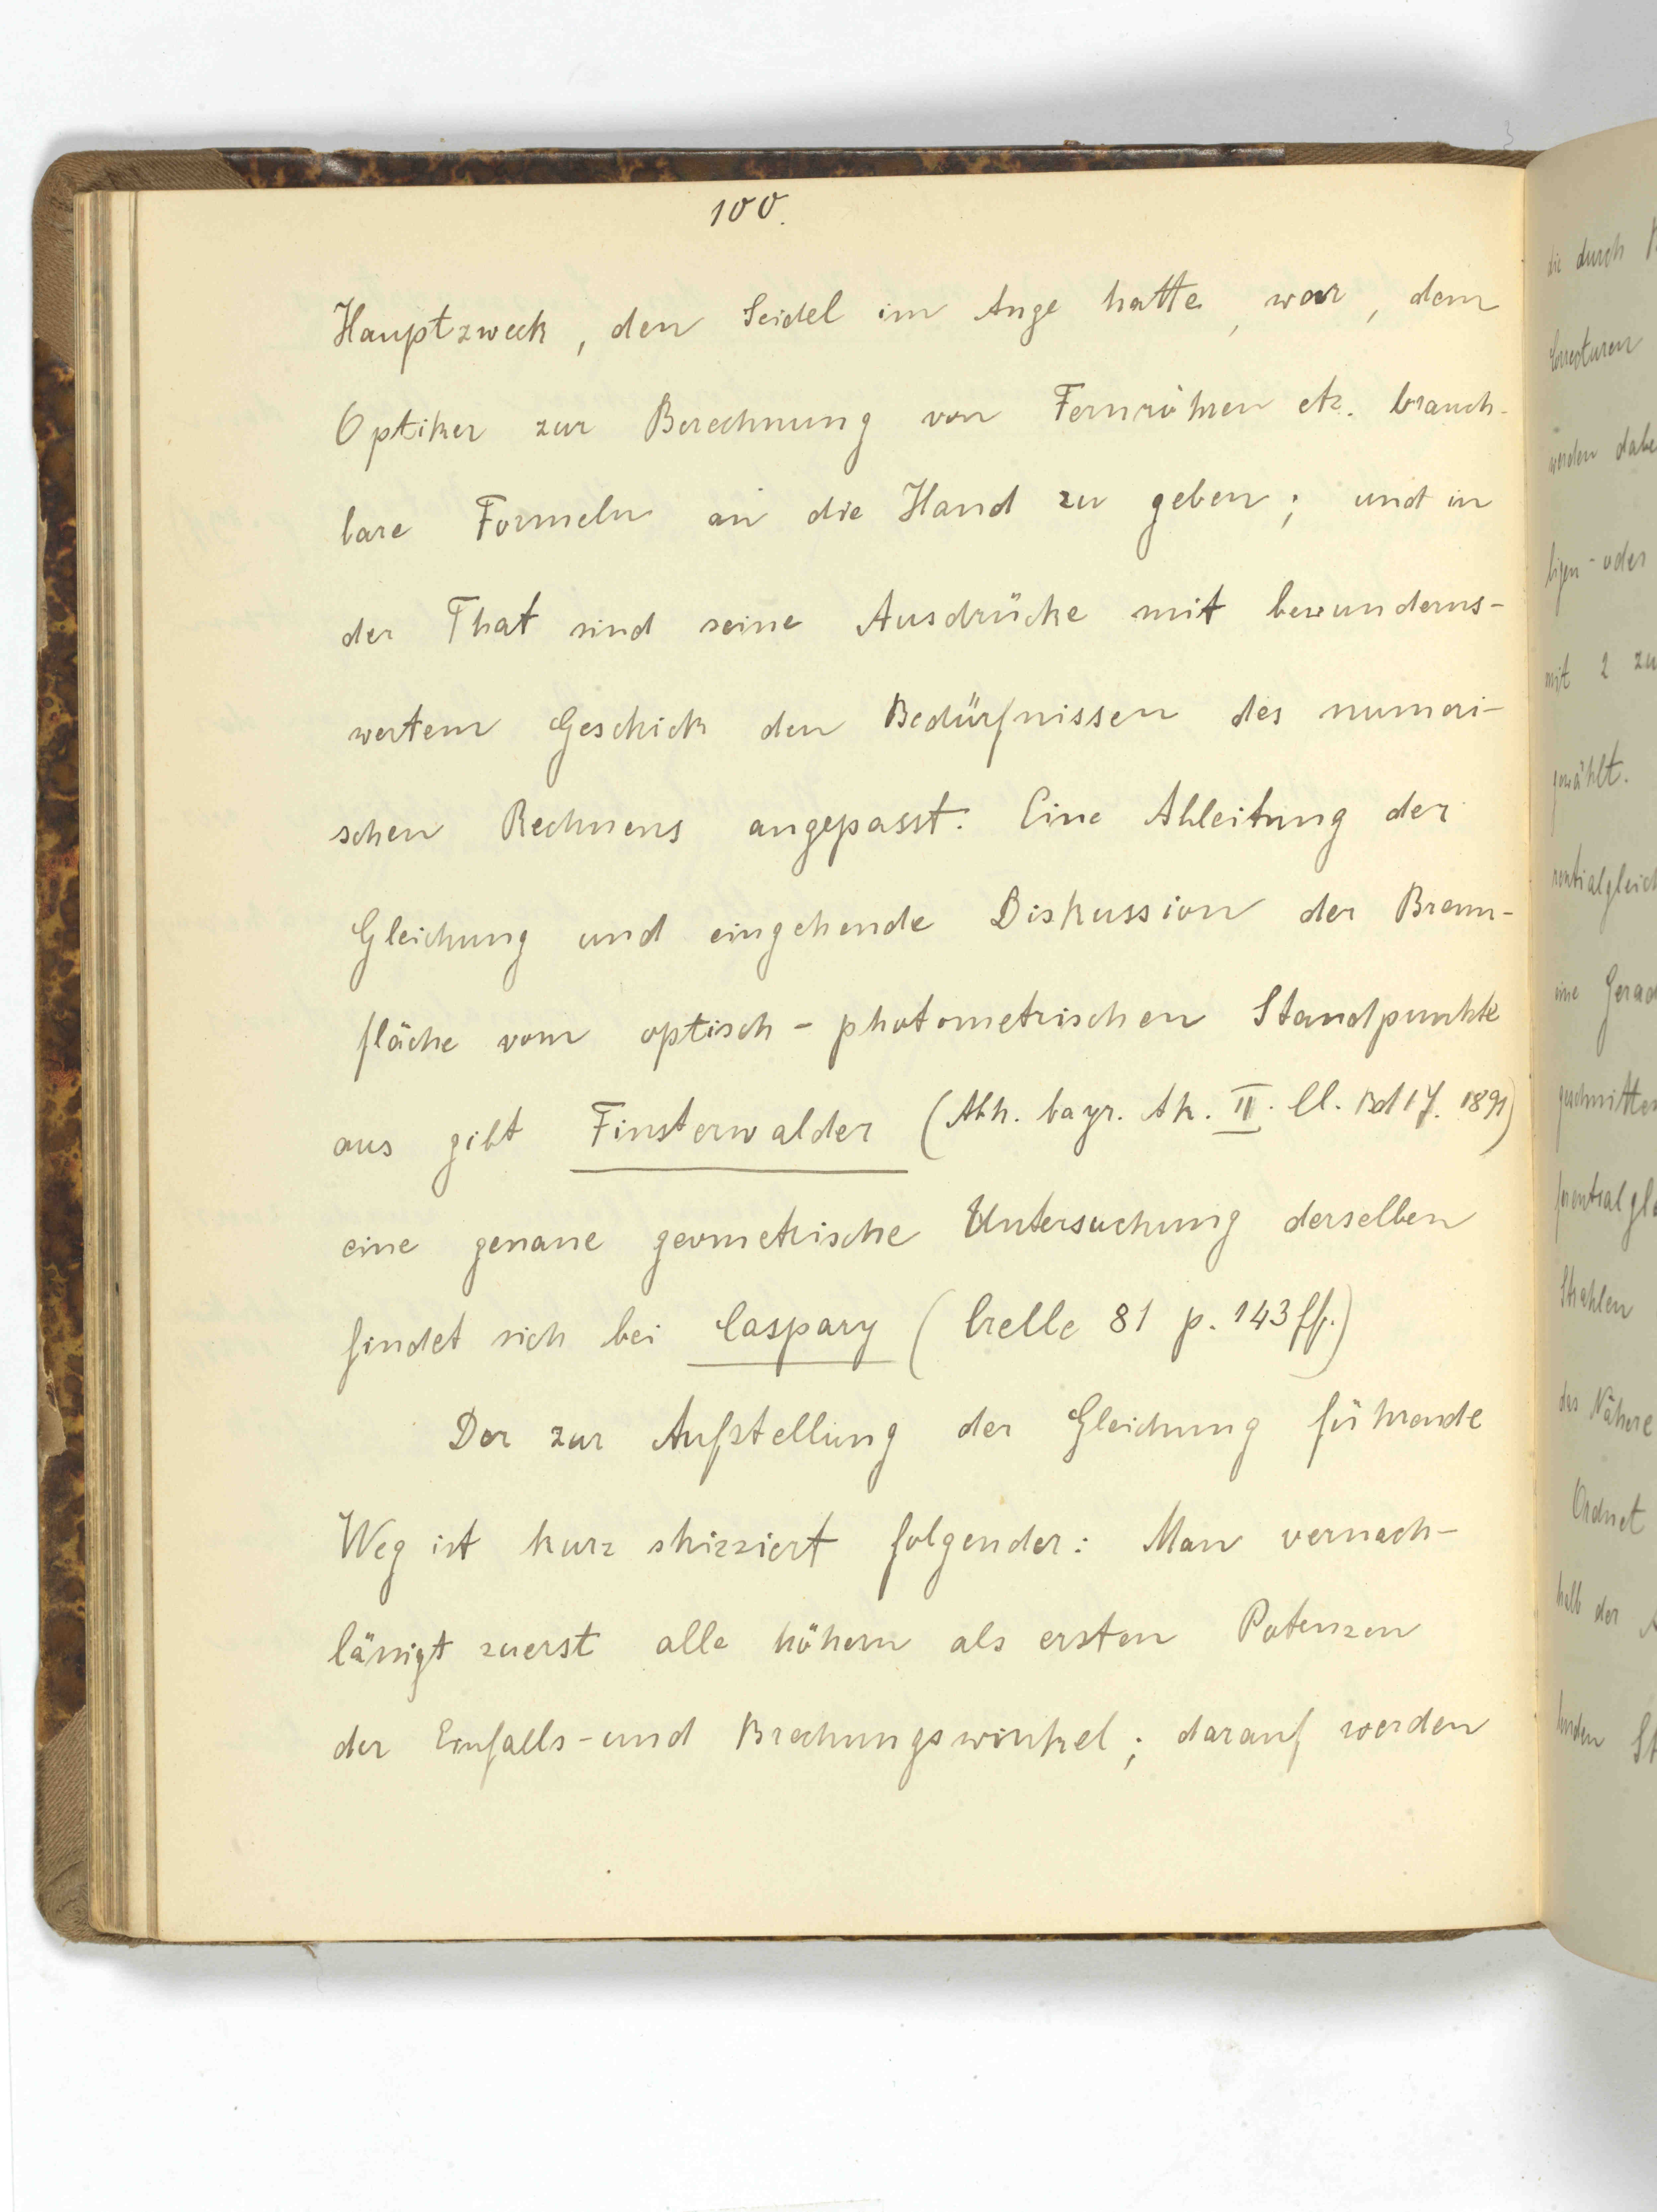 100.
Hauptzweck, den Seidel im Auge hatte, war, dem
Optiker zur Berechnung von Fernröhren etz. brauch-
bare Formeln an die Hand zu geben; und in
der That sind seine Ausdrücke mit bewunderns-
wertem Geschick den Bedürfnissen des numeri-
schen Rechnens angepasst. Eine Ableitung der
Gleichung und eingehende Diskussion der Brenn-
fläche vom optisch-photometrischen Standpunkte
aus gibt Finsterwalder (Abh. bayr. Ak. II. Cl. Bd 17. 1891)
eine genaue geometrische Untersuchung derselben
findet sich bei Caspary (Crelle 81 p. 143 ff.)
Der zur Aufstellung der Gleichung führende
Weg ist kurz skizziert folgender: Man vernach-
lässigt zuerst alle höhern als ersten Potenzen
der Einfalls- und Brechungswinkel; darauf werden
die durch
Correcturen
werden dabe
ligen - oder
mit 2 zu
gewählt.
rentialgleich
eine Gerad
geschnitten
ferentialgle
Strahlen
das Nähere
Ordnet
halb der
St